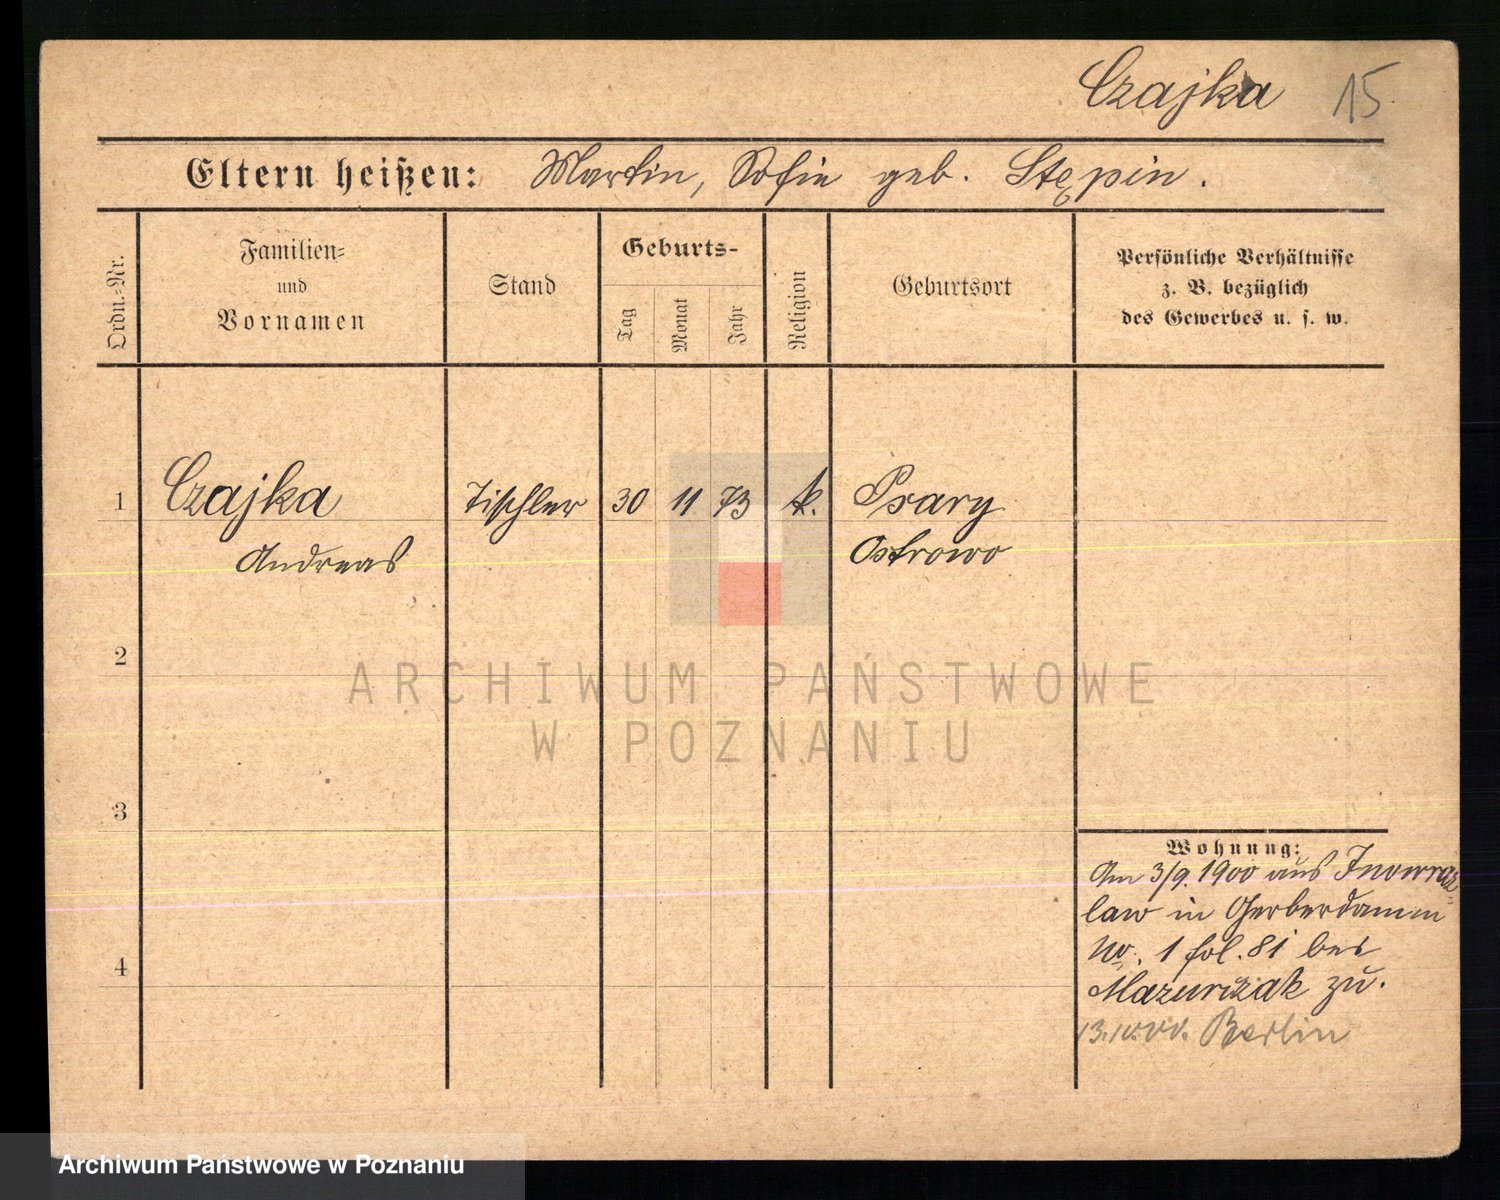 Czajka 15
Eltern heißen: Martin, Sofie geb. Stępin.
Ordn.-Nr.
Familien-
und
Vornamen
Stand
Geburts-
Tag
Monat
Jahr
Religion
Geburtsort
Persönliche Verhältnisse
z. B. bezüglich
des Gewerbes u. s. w.
1 Czajka Tischler 30 11 73 k. Psary
Andreas Ostrowo
2
ARCHIWUM PAŃSTWOWE
W POZNANIU
3
Wohnung:
Am 3/9. 1900 aus Inowraz-
law in Gerberdamm
No. 1 fol. 81 bei
zu.
Berlin
4
Archiwum Państwowe w Poznaniu